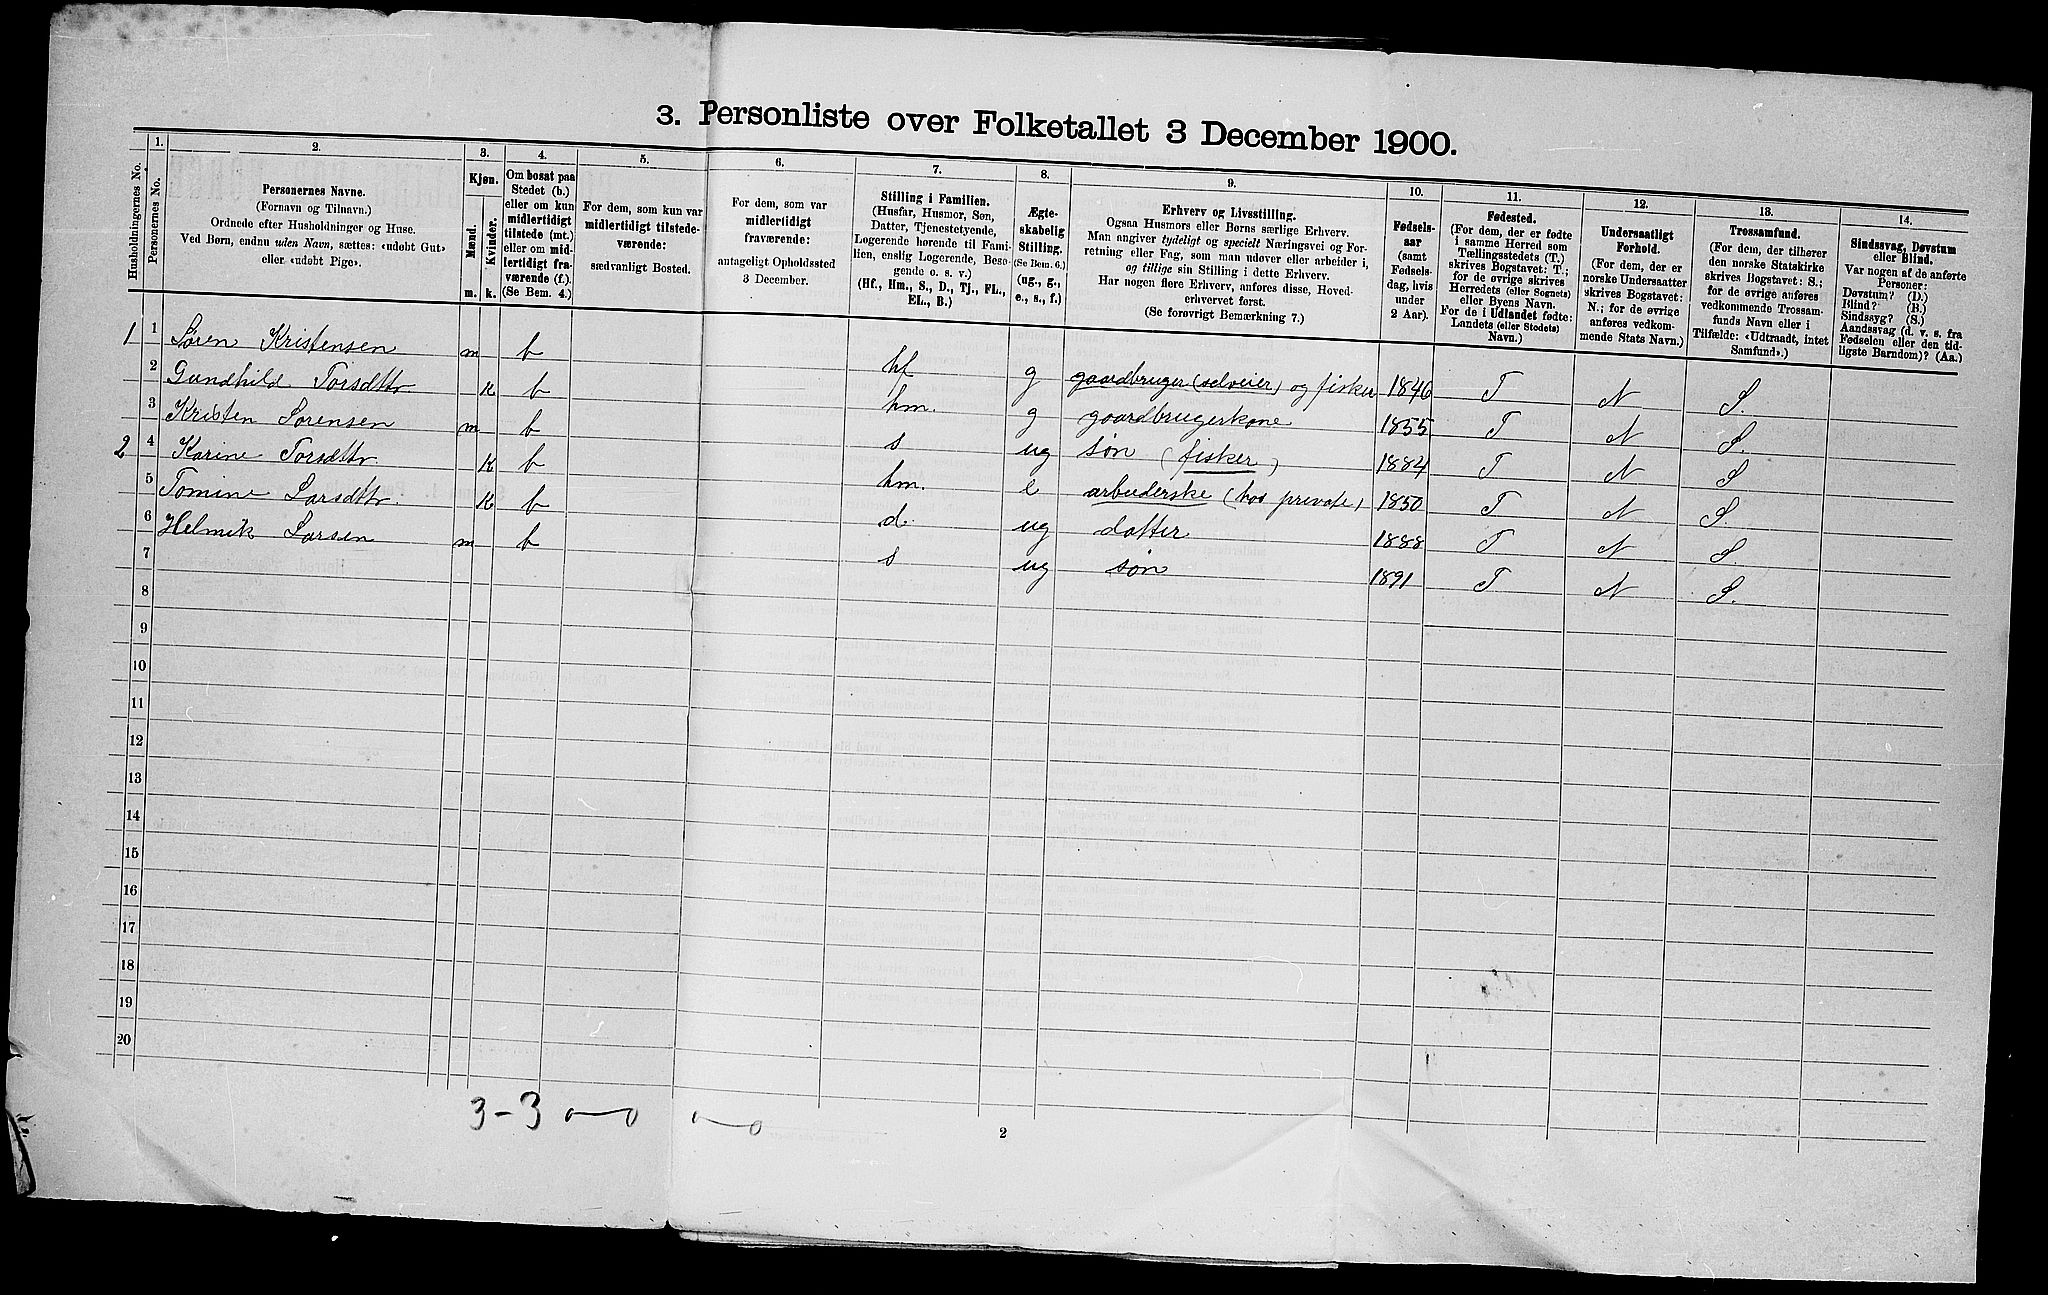 3. Personliste over Folketallet 3 December 1900.
Husholdningernes No.
1.
Personernes No.
2.
Personernes Navne.
(Fornavn og Tilnavn.)
Ordnede efter Husholdninger og Huse.
Ved Børn, endnu uden Navn, sættes: «udøbt Gut»
eller «udøbt Pige».
3.
Kjøn.
Mænd.
Kvinder.
m.
k.
4.
Om bosat paa
Stedet (b.)
eller om kun
midlertidigt
tilstede (mt.)
eller om mid-
lertidigt fra-
værende (f.).
(Se Bem. 4.)
5.
For dem, som kun var
midlertidigt tilstede-
værende:
sædvanligt Bosted.
6.
For dem, som var
midlertidigt
fraværende:
antageligt Opholdssted
3 December.
7.
Stilling i Familien.
(Husfar, Husmor, Søn,
Datter, Tjenestetyende,
Logerende hørende til Fami-
lien, enslig Logerende, Besø-
gende o. s. v.)
(Hf., Hm., S., D., Tj., FL.,
EL., B.)
8.
Ægte-
skabelig
Stilling.
(Se Bem. 6.)
(ug., g.,
e., s., f.)
9.
Erhverv og Livsstilling.
Ogsaa Husmors eller Børns særlige Erhverv.
Man angiver tydeligt og specielt Næringsvei og For-
retning eller Fag, som man udøver eller arbeider i,
og tillige sin Stilling i dette Erhverv.
Har nogen flere Erhverv, anføres disse, Hoved-
erhvervet først.
(Se forøvrigt Bemærkning 7.)
10.
Fødsels-
aar
(samt
Fødsels-
dag, hvis
under
2 Aar).
11.
Fødested.
(For dem, der er fødte
i samme Herred som
Tællingsstedets (T.)
skrives Bogstavet: T.;
for de øvrige skrives
Herredets (eller Sognets)
eller Byens Navn.
For de i Udlandet fødte:
Landets (eller Stedets)
Navn.)
12.
Undersaatligt
Forhold.
(For dem, der er
norske Undersaatter
skrives Bogstavet:
N.; for de øvrige
anføres vedkom-
mende Stats Navn.)
13.
Trossamfund.
(For dem, der tilhører
den norske Statskirke
skrives Bogstavet: S.;
for de øvrige anføres
vedkommende Trossam-
funds Navn eller i
Tilfælde: «Udtraadt, intet
Samfund».)
14.
Sindssvag, Døvstum
eller Blind.
Var nogen af de anførte
Personer:
Døvstum? (D.)
Blind? (B.)
Sindssyg? (S.)
Aandssvag (d. v. s. fra
Fødselen eller den tid-
ligste Barndom)? (Aa.)
1 1 Søren Kristensen m b hf g gaardbruger (selveier) og fisker 1846 T N S.
2 Gundhild Torsdttr K b hm. g gaardbrugerkone 1855 T N S.
3 Kristen Sørensen m b s ug søn (fisker) 1884 T N S
2 4 Karine Torsdttr. K b hm. e arbeiderske (hos private) 1850 T N S.
5 Tomine Larsdttr K b d. ug datter 1888 T N S.
6 Helmik Larsen m b s ug søn 1891 T N S.
7
8
9
10
11
12
13
14
15
16
17
18
19
20
3-3 0-0 0-0
2